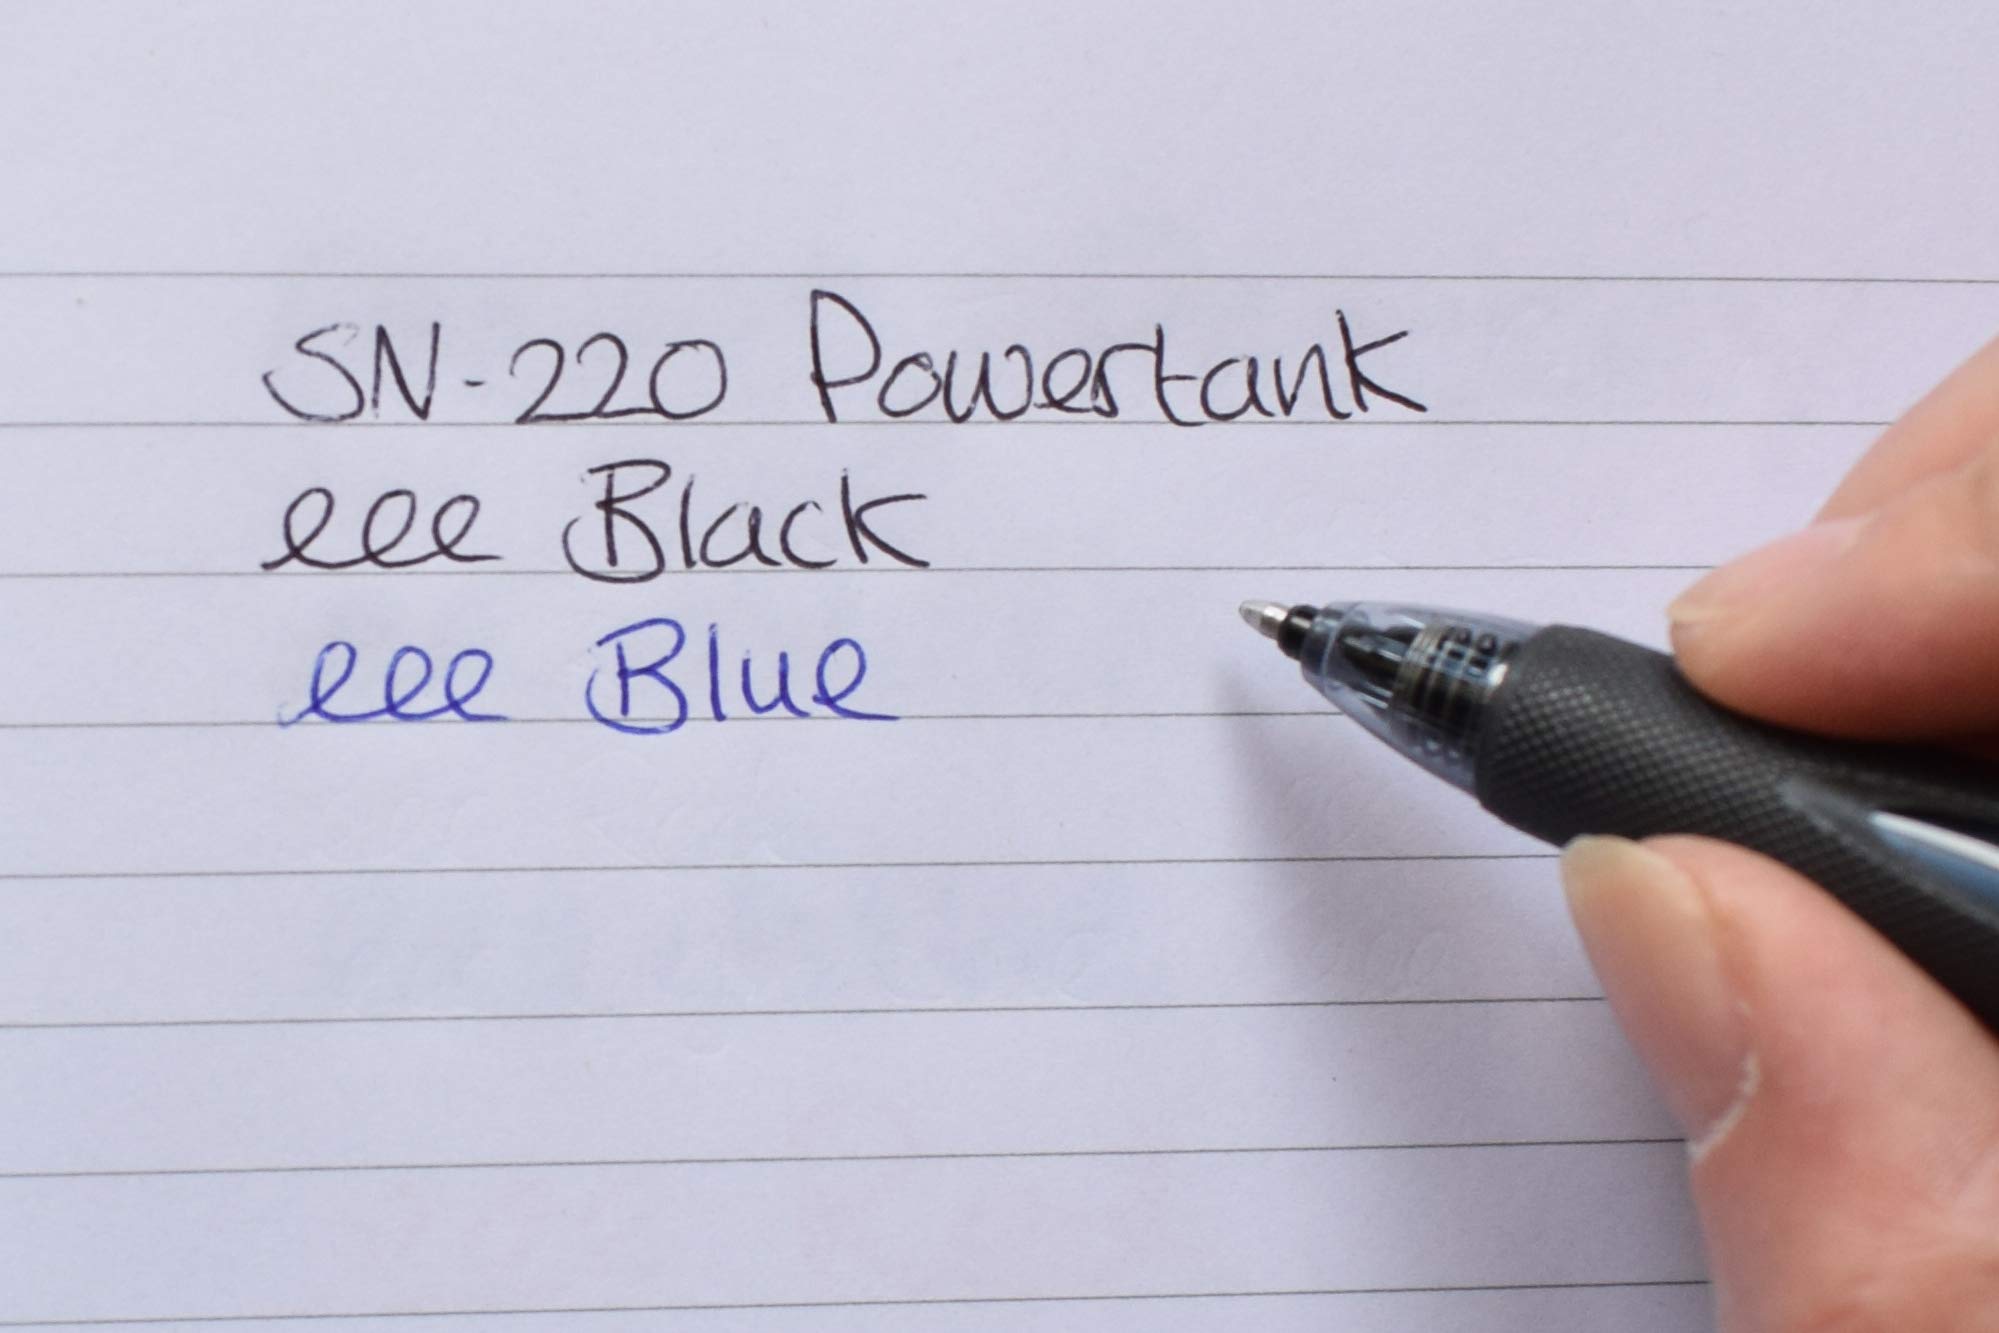 SN-220 Powertank
eee Black
eee Blue